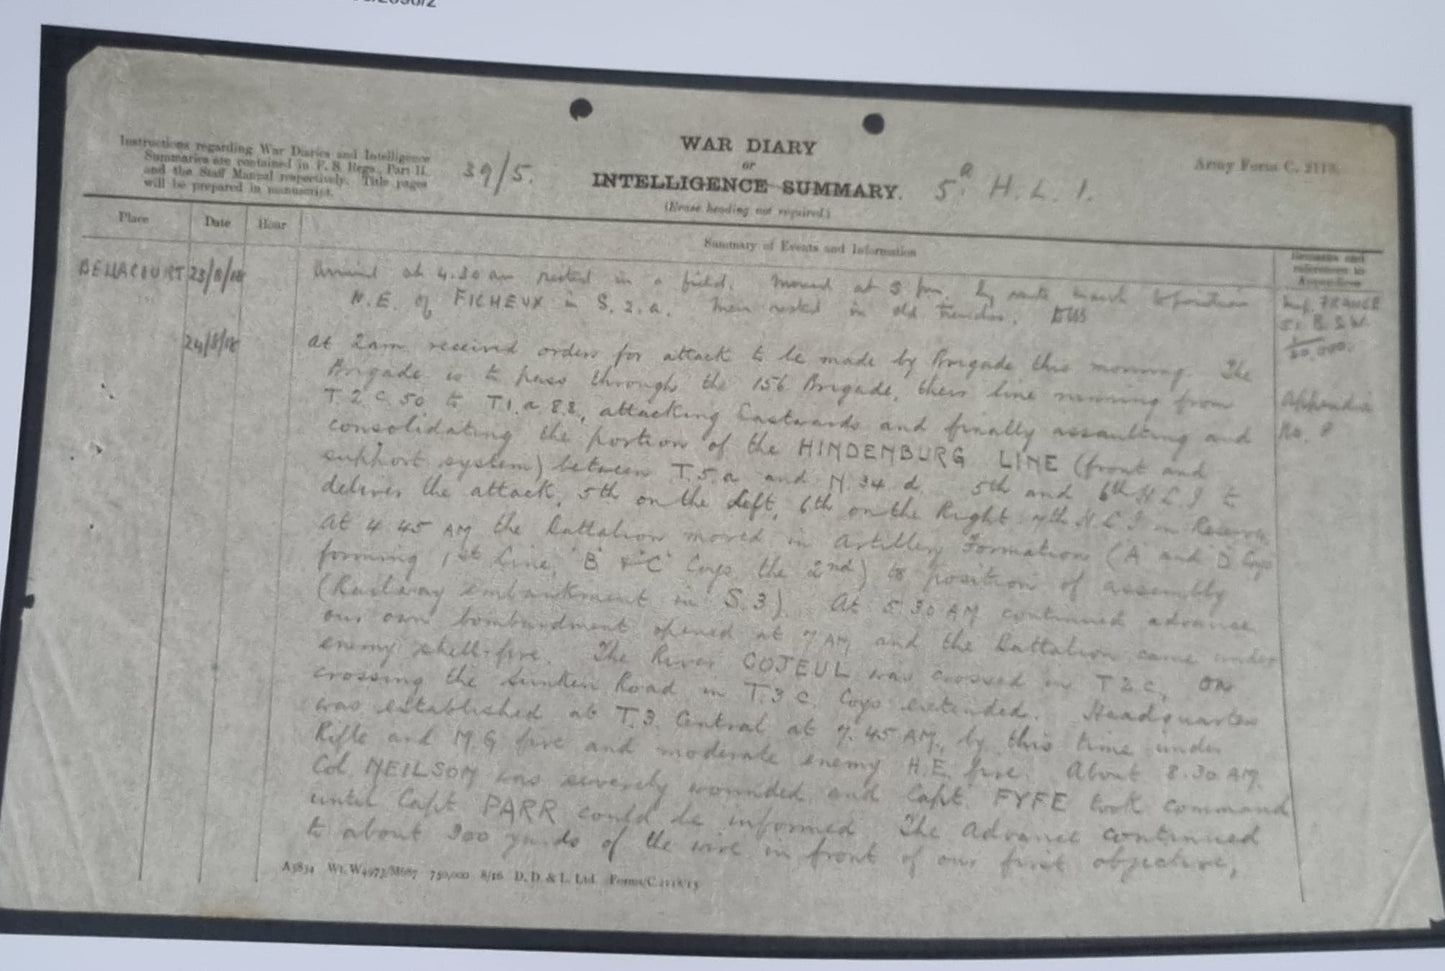 Instructions regarding War Diaries and Intelligence
Summaries are contained in F. S. Regs., Part II.
and the Staff Manual respectively. Title pages
will be prepared in manuscript.
39/5.
WAR DIARY
or
INTELLIGENCE SUMMARY.
(Erase heading not required.)
5th H. L. I.
Army Form C. 2118.
Place
Date
Hour
Summary of Events and Information
Remarks and
references to
Appendices
BELLACOURT 23/8/18 Arrived at 4.30 am rested in a field. Moved at 5 pm, by route march to position
N.E. of FICHEUX in S.2.a. Men rested in old trenches.
Ref. FRANCE
51 B. S.W.
1/20,000.
24/8/18 At 2am received orders for attack to be made by Brigade this morning. The
Brigade is to pass through the 156 Brigade, their line running from
T.2.c.50 to T1.a.8.8., attacking Eastwards and finally assaulting and
consolidating the portion of the HINDENBURG LINE (front and
support system) between T.5.a and N.34.d. 5th and 6th H L I to
deliver the attack, 5th on the Left, 6th on the Right 7th H L I in Reserve
Appendix
No.
At 4.45 AM the Battalion moved in Artillery Formation (A and D Coys
forming 1st Line, 'B' & 'C' Coys the 2nd) to position of assembly
(Railway embankment in S.3). At 5.30 AM continued advance
our own bombardment opened at 7 AM and the Battalion came under
enemy shell-fire. The River COJEUL was crossed in T2c, on
crossing the Sunken Road in T.3 c. Coys extended. Headquarters
was established at T.3. Central at 7.45 AM, by this time under
Rifle and M.G fire and moderate enemy H.E. fire. About 8.30 AM.
Col. NEILSON was severely wounded, and Capt. FYFE took command
until Capt. PARR could be informed. The Advance continued
to about 300 yards of the wire in front of our first objective,
A5834 Wt. W4973/M687 750,000 8/16 D. D. & L. Ltd. Forms/C.2118/13